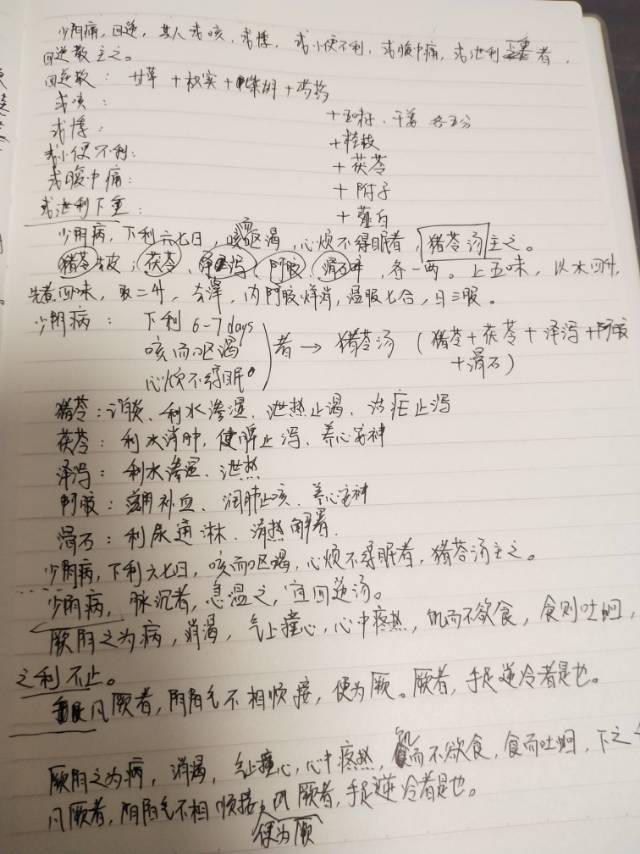 少阴病,四逆,其人或咳,或悸,或小便不利,或腹中痛,或泄利下重者,
四逆散主之。
四逆散: 甘草+枳实+柴胡+芍药
或咳: +五味子、干姜 各五分
或悸: +桂枝
或小便不利: +茯苓
或腹中痛: +附子
或泄利下重: +薤白
少阴病,下利六七日,咳而呕渴,心烦不得眠者,猪苓汤主之。
猪苓去皮,茯苓,泽泻,阿胶,滑石碎,各一两。上五味,以水四升,
先煮四味,取二升,去滓,内阿胶烊消,温服七合,日三服。
少阴病: 下利6-7days
咳而呕渴 者→猪苓汤(猪苓+茯苓+泽泻+阿胶
心烦不得眠 +滑石)
猪苓:利水渗湿、泄热止渴、治痎止泻
茯苓:利水消肿,健脾止泻、养心安神
泽泻:利水渗湿、泄热
阿胶:滋阴补血、润肺止咳、养心安神
滑石:利尿通淋、清热解暑.
少阴病,下利六七日,咳而呕渴,心烦不得眠者,猪苓汤主之。
少阴病,脉沉者,急温之,宜四逆汤。
厥阴之为病,消渴,气上撞心,心中疼热,饥而不欲食,食则吐蛔,
之利不止。
凡厥者,阴阳气不相顺接,便为厥。厥者,手足逆冷者是也。
厥阴之为病,消渴,气上撞心,心中疼热,饥而不欲食,食而吐蛔,下之
凡厥者,阴阳气不相顺接,厥者,手足逆冷者是也。
便为厥